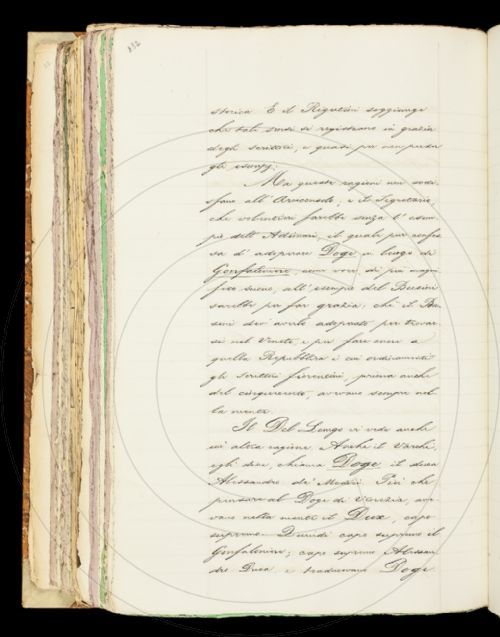 232
storica. E il Rigutini soggiunge
che tali sensi si registrano in grazia
degli scrittori, e quasi per
gli esempj.
Ma queste ragioni non sodi-
sfano all'Arciconsolo; e il Segretario,
che volentieri farebbe senza l'esem-
pio dell'Adimari, il quale pur confes-
sa d'adoperare Doge in luogo di
Gonfaloniere, come voce di più magni-
fico suono, all'esempio del Busini
sarebbe per far grazia; chè il Bu-
sini dev'averlo adoperato per trovar-
si nel Veneto, e per fare onore a
quella Repubblica a cui ordinariamente
gli scrittori fiorentini, prima anche
del cinquecento, avevano sempre nel-
la mente.
Il Del Lungo vi vede anche
un'altra ragione. Anche il Varchi,
egli dice, chiama Doge il duca
Alessandro de' Medici. Più che
pensare al Doge di Venezia, ave-
vano nella mente il Dux, capo
supremo. Quindi capo supremo il
Gonfaloniere; capo supremo Alessan-
dro Duca, e traducevano Doge.